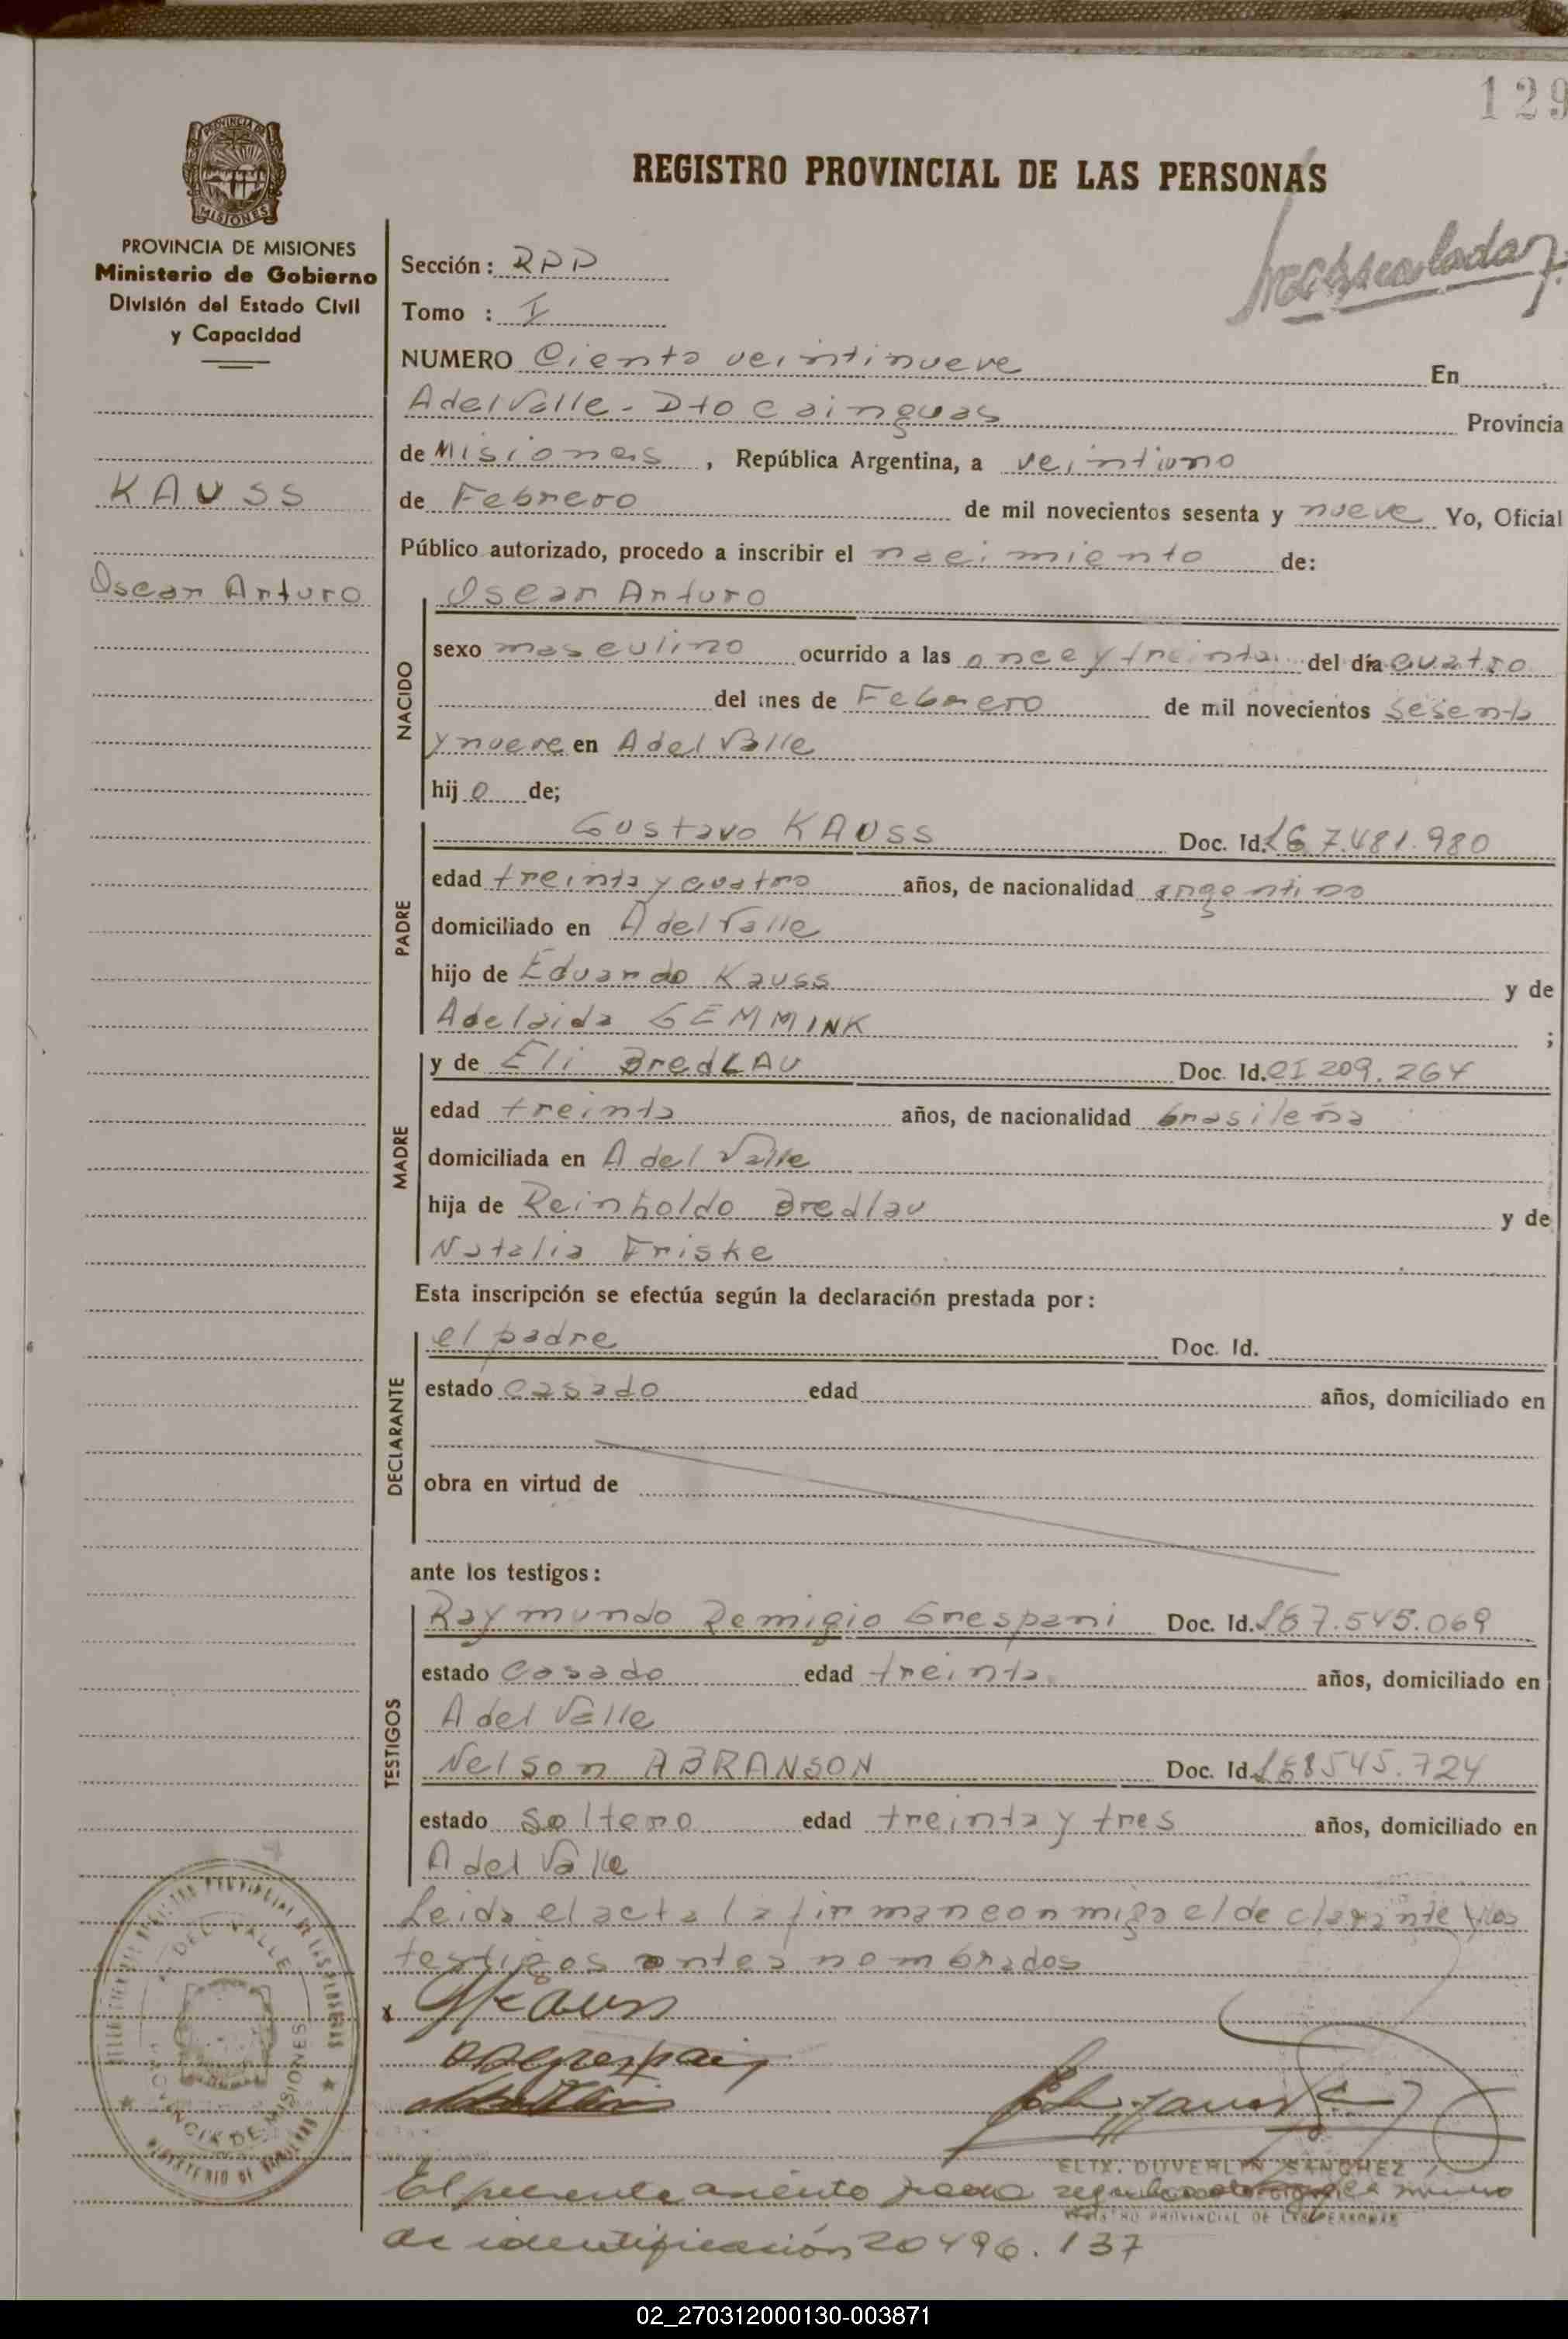 129
REGISTRO PROVINCIAL DE LAS PERSONAS
PROVINCIA DE MISIONES
Ministerio de Gobierno
División del Estado Civil
y Capacidad
KAUSS
Oscar Arturo
Sección: RPP
Tomo : I
NUMERO Ciento veintinueve En
A del Valle - Dto Cainguas Provincia
de Misiones, República Argentina, a veintiuno
de Febrero de mil novecientos sesenta y nueve Yo, Oficial
Público autorizado, procedo a inscribir el nacimiento de:
NACIDO
Oscar Arturo
sexo masculino ocurrido a las once y treinta del día cuatro
del mes de Febrero de mil novecientos sesenta
y nueve en A del Valle
hijo de;
PADRE
Gustavo KAUSS Doc. Id. 7.481.980
edad treinta y cuatro años, de nacionalidad argentino
domiciliado en A del Valle
hijo de Eduardo Kauss y de
Adelaida GEMMINK ;
MADRE
y de Eli BredLAU Doc. Id. CI 209.264
edad treinta años, de nacionalidad brasileña
domiciliada en A del Valle
hija de Reinholdo Bredlau y de
Natalia Friske
Esta inscripción se efectúa según la declaración prestada por:
DECLARANTE
el padre Doc. Id.
estado casado edad años, domiciliado en
obra en virtud de
ante los testigos:
TESTIGOS
Raymundo Remigio Grespani Doc. Id. 7.545.069
estado casado edad treinta años, domiciliado en
A del Valle
Nelson ABRANSON Doc. Id. 545.724
estado soltero edad treinta y tres años, domiciliado en
A del Valle
Leida el acta la firman con migo el declarante y los
testigos antes nombrados
x
DEL VALLE
PROVINCIA DE MISIONES
ELIX. DUVERLIN SANCHEZ
REGISTRO PROVINCIAL DE LAS PERSONAS
El presente asiento
de identificación 20496.137
02_270312000130-003871